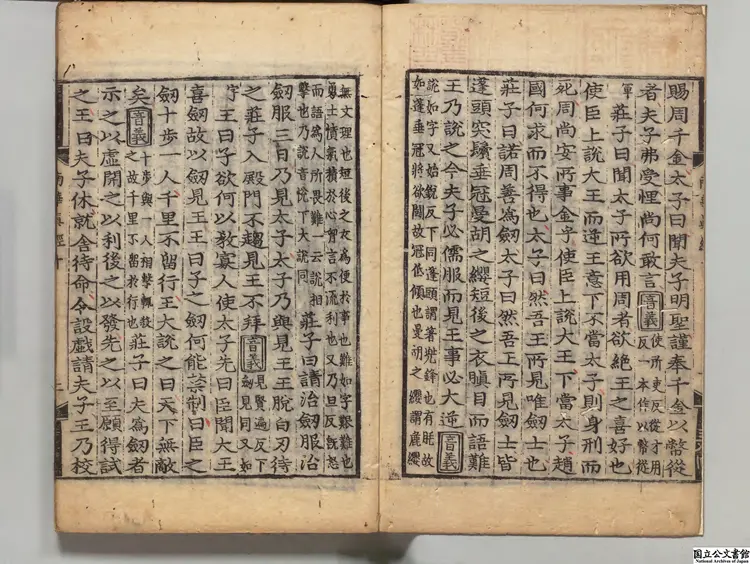 賜周千金太子曰聞夫子明聖謹奉千金以幣從
者夫子弗受悝尚何敢言音義使所吏反從才用
反一本作以幣從
軍 莊子曰聞太子所欲用周者欲絶王之喜好也
使臣上說大王而逆王意下不當太子則身刑而
死周尚安所事金乎使臣上說大王下當太子趙
國何求而不得也太子曰然吾王所見唯劒士也
莊子曰諾周善為劒太子曰然吾王所見劒士皆
蓬頭突鬢垂冠曼胡之纓短後之衣瞋目而語難
王乃說之今夫子必儒服而見王事必大逆音義
說如字又始銳反下同蓬頭謂著兠鍪也有毦故
如蓬垂冠將欲鬭故冠低傾也曼胡之纓謂麁纓
無文理也短後之衣為便於事也難如字艱難也
勇士憤氣積於心胷言不流利也又乃旦反旣怒
而語為人所畏難一云說相
擊也乃說音悅下大說同 莊子曰請治劒服治
劒服三日乃見太子太子乃與見王王脫白刃待
之莊子入殿門不趨見王不拜音義見賢遍反下
劒見同又如
字 王曰子欲何以教寡人使太子先曰臣聞大王
喜劒故以劒見王王曰子之劒何能禁制曰臣之
劒十步一人千里不留行王大說之曰天下無敵
矣音義十步與一人相擊輒殺
之故千里不留於行也莊子曰夫為劒者
示之以虛開之以利後之以發先之以至願得試
之王曰夫子休就舍待命令設戲請夫子王乃校
南華真經十
国立公文書館
National Archives of Japan